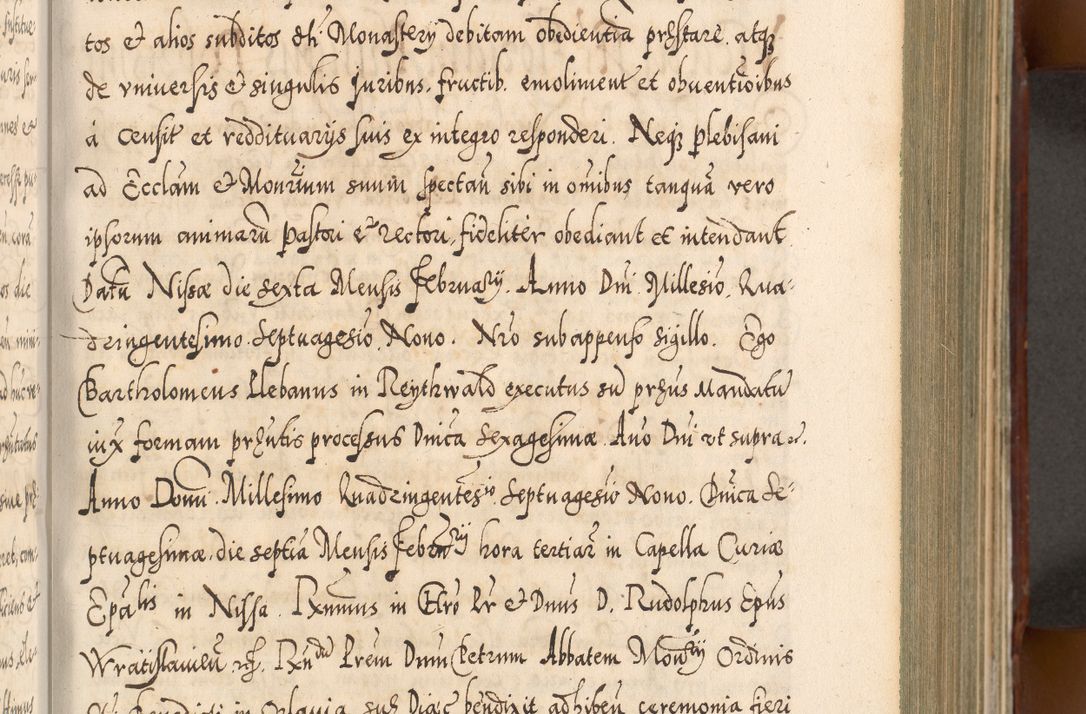 tos et alios subditos dti Monastery debitam obedientiā pręstare. atqȝ
de vniuersis et singulis Juribus. fructib. emoliment et obuentiōibus
á censit et reddituarijs suis ex integro responderi. Neqȝ Plebisani
ad Ecclam et Monrium suum spectan̄ sibi in om̄ibus tanquā vero
ipsorum animarū Pastori et rectori, fideliter obediant et intendant
Datū Nissæ die sexta Mensis February. Anno Dni Millesio. Qua-
dringentesimo Septuagesiō Nono. Nrō subappenso sigillo. Ego
Bartholomeus Plebanus in Reythwald executus sū prȝus Mandatū
iux formam prȝntis processus Dnica Sexagesimæ. Ano Dni vt supra etc.
Anno Domi Millesimo Quadringentesio Septuagesiō Nono. Dnica Se-
ptuagesimæ, die septīa Mensis Febry hora tertiar in Capella Curiæ
Epalis in Nissa. Rxmus in Chro Pr et Dnus D. Rudolphus Epus
Wratislauien̄ etc. Rxndu Prem Dnm Petrum Abbatem Monrÿ Ordinis
Sti Benedicti in Olauia, sub Diac bendixit adhiben̄ ceremonia fieri